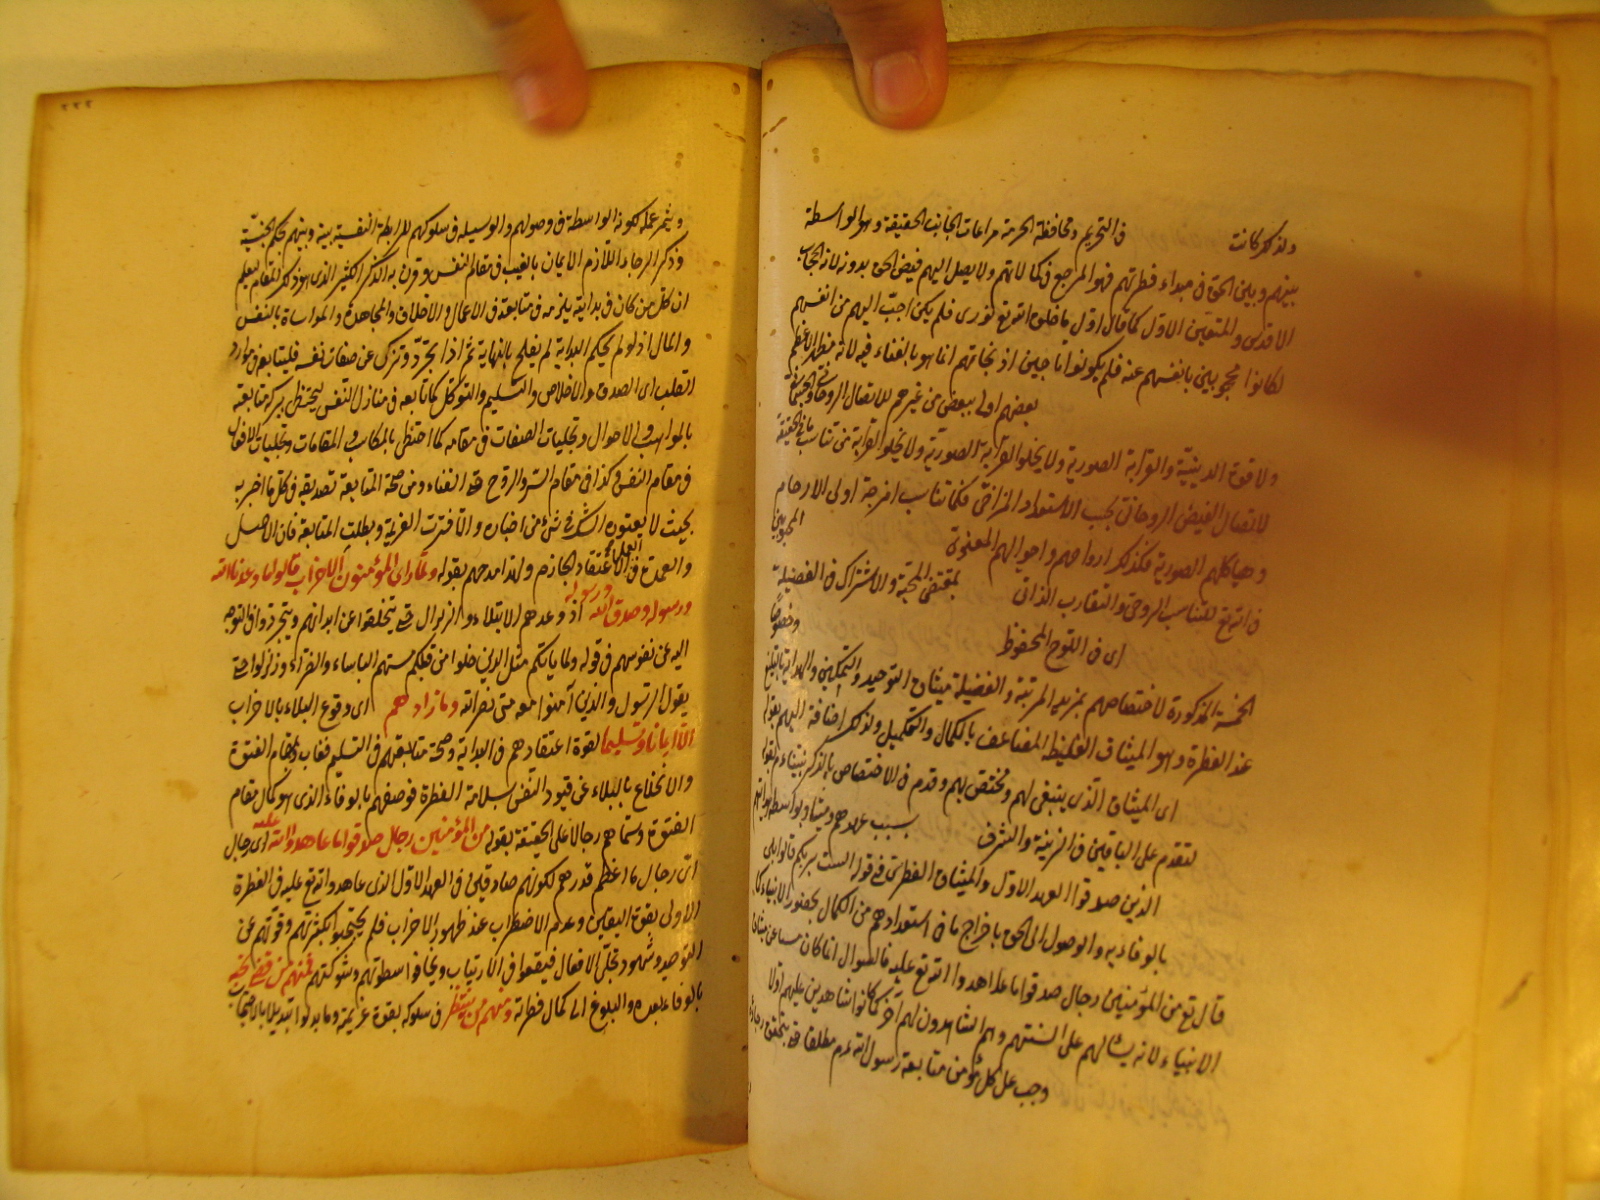 ولذلك كانت في التحريم ومحافظة الحرمة مراعات لجانب الحقيقة وهو الواسطة
بينهم وبين الحق في مبداء فطرتهم فهو المرجع في كمالاتهم ولا يصل اليهم فيض الحق بدونه لانه الحجاب
الاقدس والمتعين الاول كما قال اول ما خلق الله تع نوري فلو لم يكن احب اليهم من انفسهم
لكانوا محجوبين بانفسهم عنه فلم يكونوا ناجين اذ نجاتهم انما هو بالفناء فيه لانه مظهر الاعظم
بعضهم اولى ببعض من غيرهم للاتصال الروحاني والجسماني
ولاخوة الدينية والقرابة الصورية ولا يخلوا القرابة من تناسب ما في الحقيقة
لاتصال الفيض الروحاني بحسب الاستعداد المزاجي فكما تناسب امزجة اولى الارحام
وهياكلهم الصورية فكذلك ارواحهم واحوالهم المعنوية المحبوبين
في الله تع للتناسب الروحي والتقارب الذاتي بمقتضى المحبة والاشتراك في الفضيلة
اى في اللوح المحفوظ وخصوصا
الخمسة المذكورة لاختصاصهم بمزيد المرتبة والفضيلة ميثاق التوحيد والتكميل والهداية بالتبليغ
عند الفطرة وهو الميثاق الغليظ المضاعف بالكمال والتكميل ولذلك اضافه اليهم بقوله
اى الميثاق الذى ينبغى لهم ومختص بهم وقدم في الاختصاص بالذكر نبينا عم بقوله
لتقدم على الباقين في الرتبة والشرف بسبب عهدهم وميثاق بواسطة هدايتهم
الذين صدقوا العهد الاول والميثاق الفطرى في قوله الست بربكم قالوا بلى
بالوفاء به والوصول الى الحق باخراج ما في استعدادهم من الكمال بحضور الانبياء كما
قال تع من المؤمنين رجال صدقوا ما عاهدوا الله تع عليه فالسؤال انما كان مسببا عن ميثاق
الانبياء لانه يسألهم على السنتهم وهم الشاهدون لهم آخرا كما كانوا شاهدين عليهم اولا
وجب على كل مؤمن متابعة رسول الله عم مطلقا حتى يتحقق رجاؤه
ويثمر عمله لكونه الواسطة في وصولهم والوسيلة في سلوكهم للرابطة النفسية بينه وبينهم بحكم الجنسية
وذكر الرجاء اللازم للايمان بالغيب في مقام النفس وقرن به الذكر الكثير الذى هو ذلك المقام ليعلم
ان كل من كان في بدايته يلزمه متابعته في الاعمال والاخلاق والمجاهدة والمواساة بالنفس
والمال اذ لو لم يحكم البداية لم يفلح بالنهاية ثم اذا تجرد وتزكى عن صفات نفسه فليتابعه في موارد
القلب اى الصدق والاخلاص والتسليم والتوكل كما تابعه في منازل النفس ليحتظى ببركة متابعته
بالمواهب والاحوال وتجليات الصفات في مقامه كما احتظى بالمكاسب والمقامات وتجليات الافعال
في مقام النفس وكذا في مقام السر والروح حتى الفناء ومن صحة المتابعة تصديقه في كل ما اخبر به
بحيث لا يعتوره الشك في شئ من اخباره والا فترت العزيمة وبطلت المتابعة فان الاصل
والعمدة في العمل الاعتقاد الجازم ولهذا مدحهم بقوله ولما راى المؤمنون الاحزاب قالوا هذا ما وعدنا الله
ورسوله وصدق الله ورسوله اذ وعدهم الابتلاء والزلزال حتى يتخلعوا عن ابدانهم ويتجردوا في التوجه
اليه عن نفوسهم في قوله ولما يأتكم مثل الذين خلوا من قبلكم مستهم البأساء والضراء وزلزلوا حتى
يقول الرسول والذين آمنوا معه متى نصر الله وما زادهم اى وقوع البلاء بالاحزاب
الا ايمانا وتسليما لقوة اعتقادهم في البداية وصحة متابعتهم في التسليم فغازوا بمقام الفتوة
والانخلاع بالبلاء عن قيود النفس لسلامة الفطرة فوصفهم بالوفاء الذى هو كمال مقام
الفتوة وسماهم رجالا على الحقيقة بقوله من المؤمنين رجال صدقوا ما عاهدوا الله عليه اى رجال
اى رجال ما اعظم قدرهم لكونهم صادقين في العهد الاول الذى عاهدوا الله تع عليه في الفطرة
الاولى بقوة اليقين وعدم الاضطراب عند ظهور الاحزاب فلم يحتجبوا بكثرتهم وقوتهم عن
التوحيد وشهود تجلى الافعال فيقعوا في الارتياب ويخافوا سطوتهم وشوكتهم فمنهم من قضى نحبه
بالوفاء بعهده والبلوغ الى كمال فطرته ومنهم من ينتظر في سلوكه بقوة عزيمته وما بدلوا تبديلا بالاحتجاب